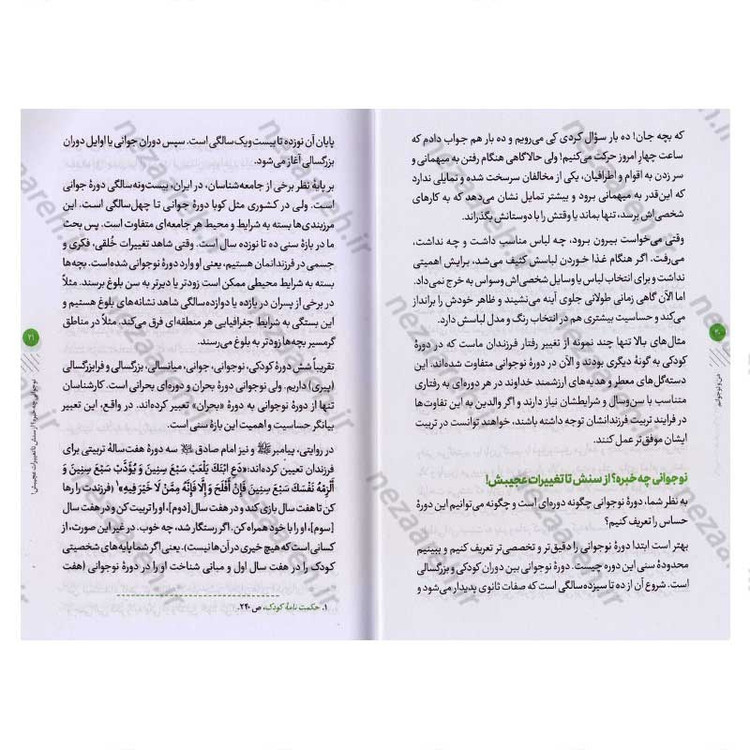 که بچه جان! ده بار سؤال کردی کی می‌رویم و ده بار هم جواب دادم که
ساعت چهار امروز حرکت می‌کنیم! ولی حالا گاهی هنگام رفتن به میهمانی و
سر زدن به اقوام و اطرافیان، یکی از مخالفان سرسخت شده و تمایلی ندارد
که این‌قدر به میهمانی برود و بیشتر تمایل نشان می‌دهد که به کارهای
شخصی‌اش برسد، تنها بماند یا وقتش را با دوستانش بگذراند.
وقتی می‌خواست بیرون برود، چه لباس مناسب داشت و چه نداشت،
می‌رفت. اگر هنگام غذا خوردن لباسش کثیف می‌شد، برایش اهمیتی
نداشت و برای انتخاب لباس یا وسایل شخصی‌اش وسواس به خرج نمی‌داد.
اما الآن گاهی زمانی طولانی جلوی آینه می‌نشیند و ظاهر خودش را برانداز
می‌کند و حساسیت بیشتری هم در انتخاب رنگ و مدل لباسش دارد.
مثال‌های بالا تنها چند نمونه از تغییر رفتار فرزندان ماست که در دورهٔ
کودکی به گونهٔ دیگری بودند و الآن در دورهٔ نوجوانی متفاوت شده‌اند. این
دسته‌گل‌های معطر و هدیه‌های ارزشمند خداوند در هر دوره‌ای به رفتاری
متناسب با سن‌وسال و شرایطشان نیاز دارند و اگر والدین به این تفاوت‌ها
در فرایند تربیت فرزندانشان توجه داشته باشند، خواهند توانست در تربیت
ایشان موفق‌تر عمل کنند.
نوجوانی چه خبره؟ از سنش تا تغییرات عجیبش!
به نظر شما، دورهٔ نوجوانی چگونه دوره‌ای است و چگونه می‌توانیم این دورهٔ
حساس را تعریف کنیم؟
بهتر است ابتدا دورهٔ نوجوانی را دقیق‌تر و تخصصی‌تر تعریف کنیم و ببینیم
محدودهٔ سنی این دوره چیست. دورهٔ نوجوانی بین دوران کودکی و بزرگسالی
است. شروع آن از ده تا سیزده‌سالگی است که صفات ثانوی پدیدار می‌شود و
۲۰
من و نوجوانم
پایان آن نوزده تا بیست‌ویک‌سالگی است. سپس دوران جوانی یا اوایل دوران
بزرگسالی آغاز می‌شود.
بر پایهٔ نظر برخی از جامعه‌شناسان، در ایران، بیست‌ونه‌سالگی دورهٔ جوانی
است. ولی در کشوری مثل کوبا دورهٔ جوانی تا چهل‌سالگی است. این
مرزبندی‌ها بسته به شرایط و محیط هر جامعه‌ای متفاوت است. پس بحث
ما در بازهٔ سنی ده تا نوزده سال است. وقتی شاهد تغییرات خُلقی، فکری و
جسمی در فرزندانمان هستیم، یعنی او وارد دورهٔ نوجوانی شده است. بچه‌ها
بسته به شرایط محیطی ممکن است زودتر یا دیرتر به سن بلوغ برسند. مثلاً
در برخی از پسران در یازده یا دوازده‌سالگی شاهد نشانه‌های بلوغ هستیم و
این بستگی به شرایط جغرافیایی هر منطقه‌ای فرق می‌کند. مثلاً در مناطق
گرمسیر بچه‌ها زودتر به بلوغ می‌رسند.
تقریباً شش دورهٔ کودکی، نوجوانی، جوانی، میانسالی، بزرگسالی و فرابزرگسالی
(پیری) داریم. ولی نوجوانی دورهٔ بحران و دوره‌ای بحرانی است. کارشناسان
تنها از دورهٔ نوجوانی به دورهٔ «بحران» تعبیر کرده‌اند. در واقع، این تعبیر
بیانگر حساسیت و اهمیت این بازهٔ سنی است.
در روایتی، پیامبر ﷺ و نیز امام صادق سه دورهٔ هفت‌سالهٔ تربیتی برای
فرزندان تعیین کرده‌اند: «دَعِ ابْنَكَ يَلْعَبْ سَبْعَ سِنِينَ وَ يُؤَدَّبْ سَبْعَ سِنِينَ وَ
أَلْزِمْهُ نَفْسَكَ سَبْعَ سِنِينَ فَإِنْ أَفْلَحَ وَ إِلَّا فَإِنَّهُ مِمَّنْ لَا خَيْرَ فِيهِ»۱ (فرزندت را رها
کن تا هفت سال بازی کند و در هفت سال [دوم]، او را تربیت کن و در هفت سال
[سوم]، او را با خود همراه کن. اگر رستگار شد، چه خوب. در غیر این صورت، از
کسانی است که هیچ خیری در آن‌ها نیست). یعنی اگر شما پایه‌های شخصیتی
کودک را در هفت سال اول و مبانی شناخت او را در دورهٔ نوجوانی (هفت
۱. حکمت نامهٔ کودک، ص ۲۴۰.
۲۱
نوجوانی چه خبره؟ از سنش تا تغییرات عجیبش!
nezaareh.ir